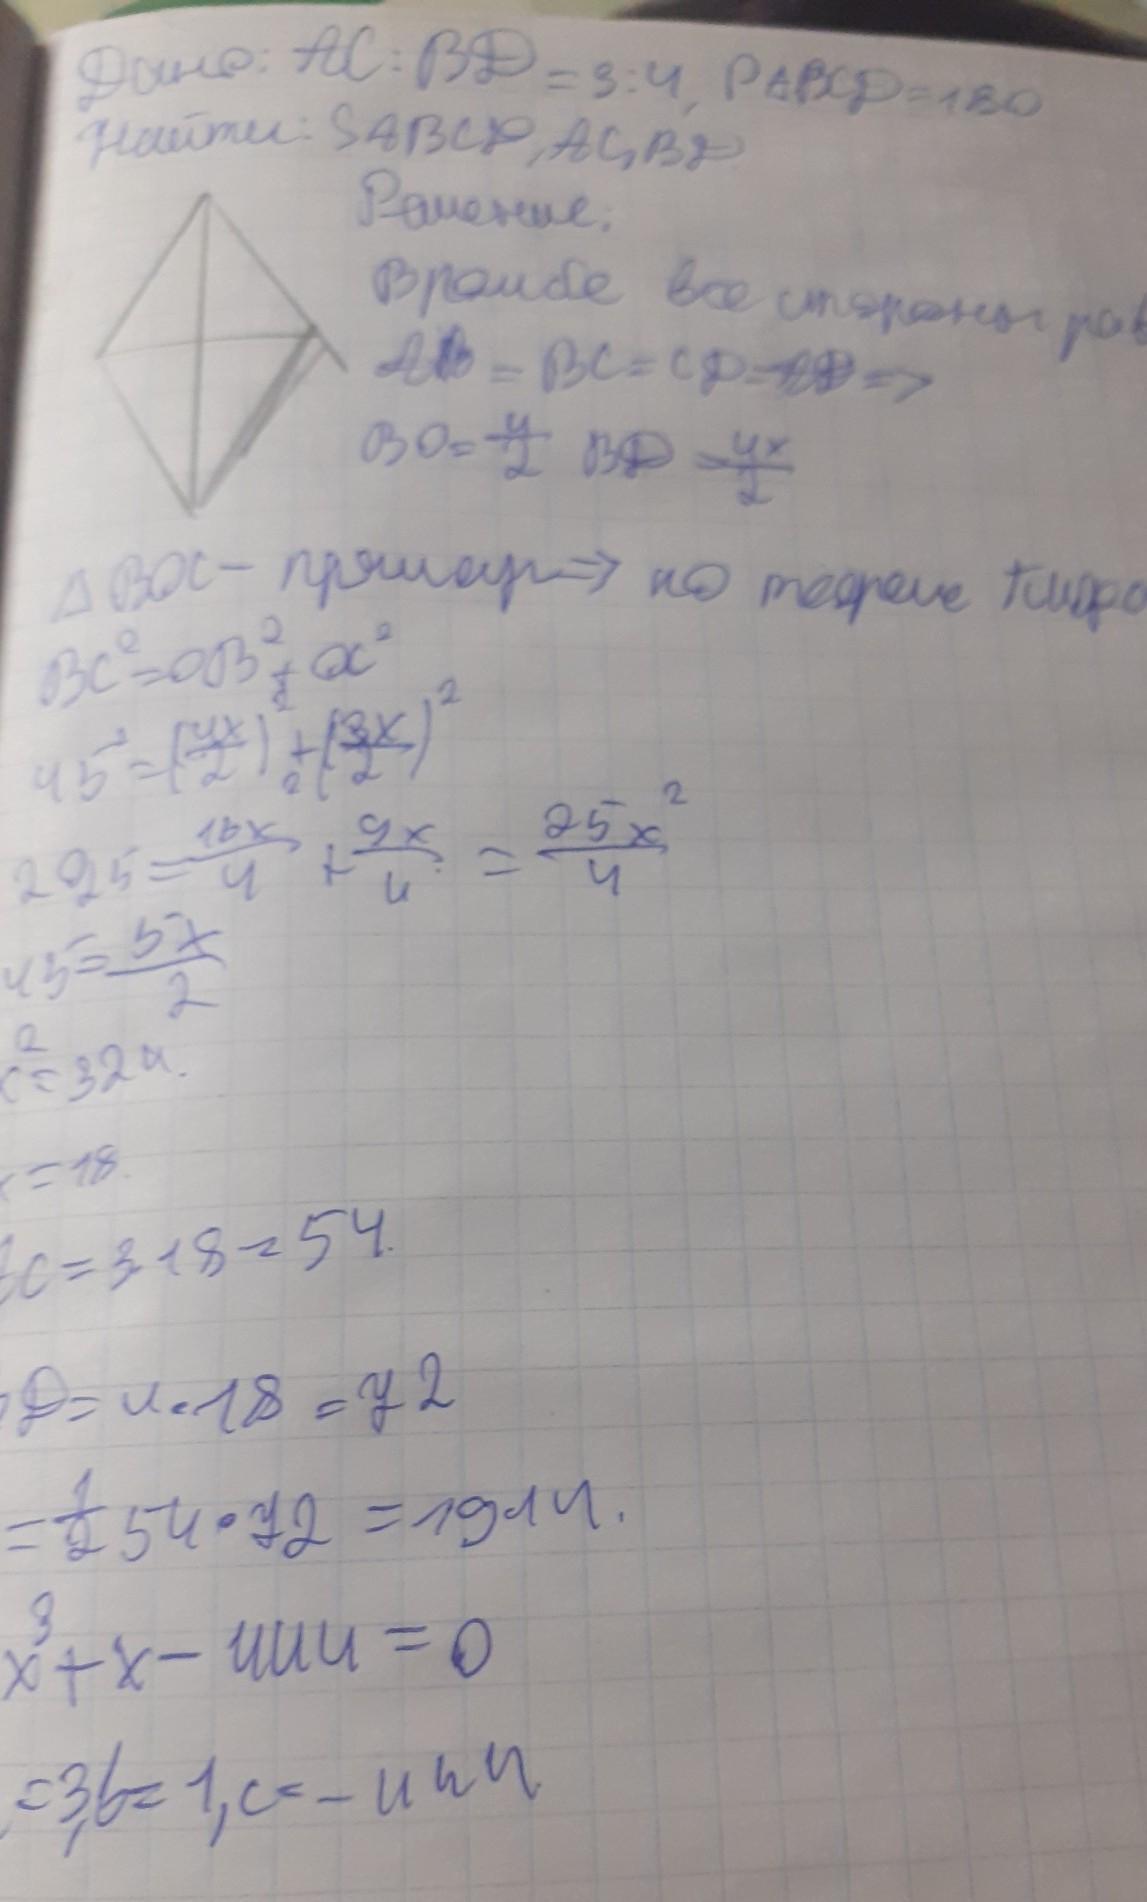 Дано: AC:BD=3:4, PABCD=180
Найти: SABCD, AC, BD
Решение:
В ромбе все стороны рав
AB=BC=CD=AD=>
BO=4/2 BD=4x/2
△BOC- прямоуг=> по теореме Пифа
BC²=OB²+OC²
45²=(4x/2)²+(3x/2)²
2925=16x/4+9x/4=25x²/4
45=5x/2
x²=324.
x=18.
AC=3·18=54.
D=4·18=72
=1/2 54·72=1914.
x³+x-444=0
=3,b=1,c=-444